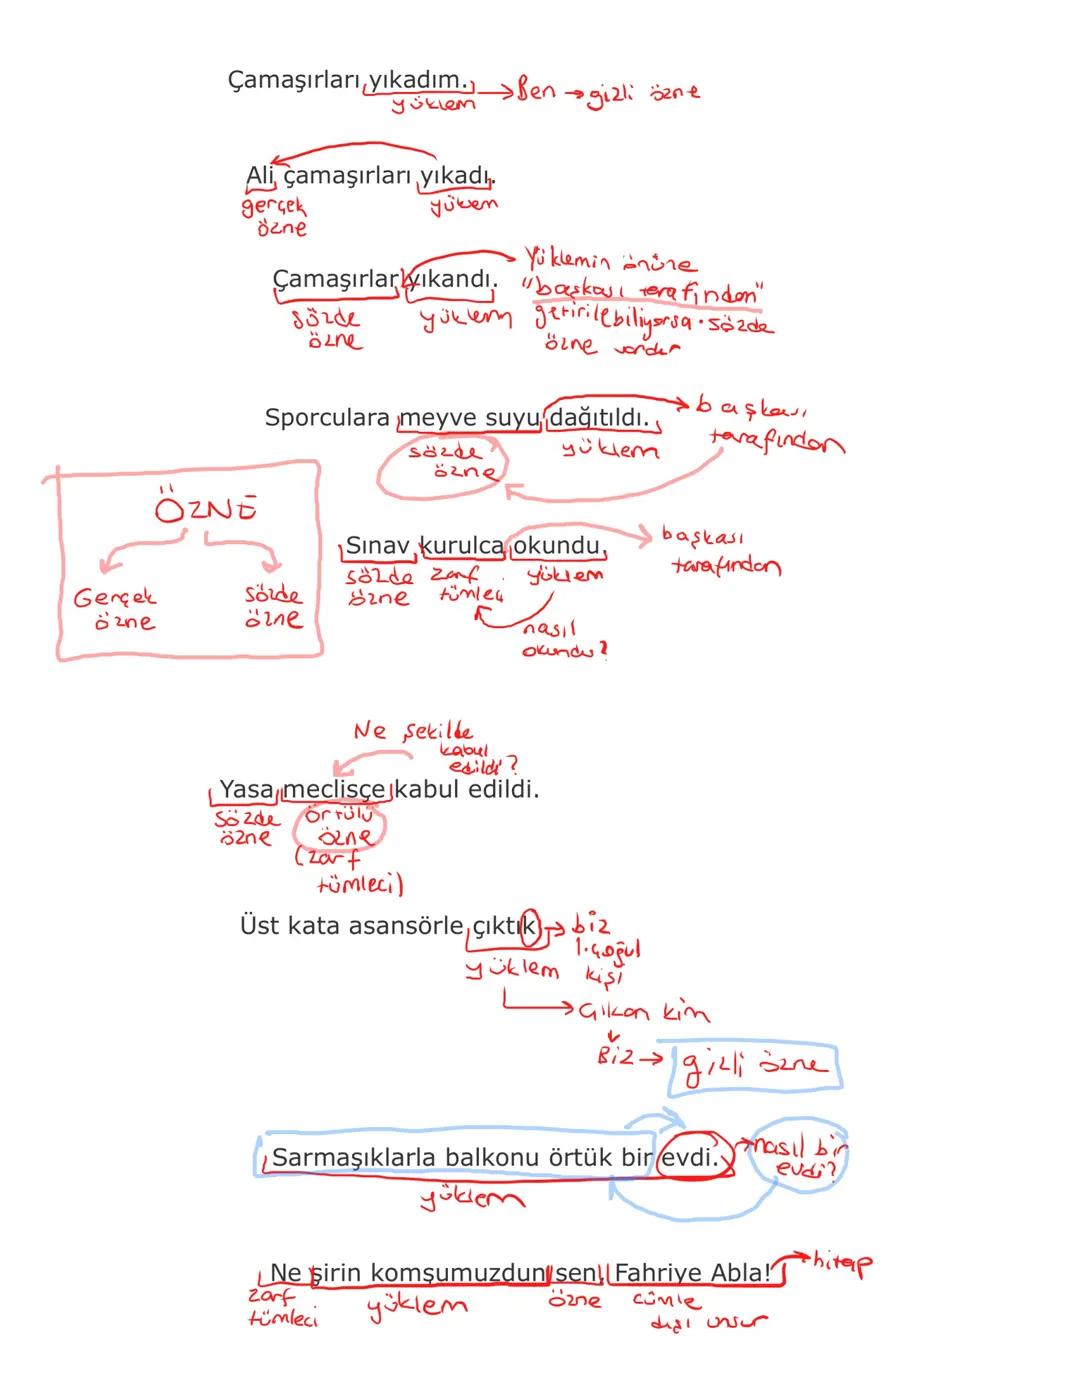 Çamaşırları yıkadım. → Ben → gizli özne
yüklem
Ali çamaşırları yıkadı.
gerçek özne
yüklem
Çamaşırlar yıkandı.
sözde özne
yüklem
Yüklemin önüne
"başkası tarafından"
getirilebiliyorsa sözde
özne vardır
Sporculara meyve suyu dağıtıldı.
sözde özne
yüklem
başkası
tarafından
ÖZNE
Gerçek özne
sözde özne
Sınav kurulca okundu.
sözde özne
zarf tümleci
yüklem
başkası
tarafından
nasıl
okundu?
Ne şekilde
kabul
edildi?
Yasa meclisçe kabul edildi.
sözde özne
örtülü özne
(zarf
tümleci)
Üst kata asansörle çıktık → biz
1. çoğul
kişi
yüklem
Çıkan kim
Biz → gizli özne
Sarmaşıklarla balkonu örtük bir evdi.
yüklem
nasıl bir
evdi?
Ne şirin komşumuzdun sen, Fahriye Abla! hitap
zarf tümleci
yüklem
özne
cümle
dışı unsur